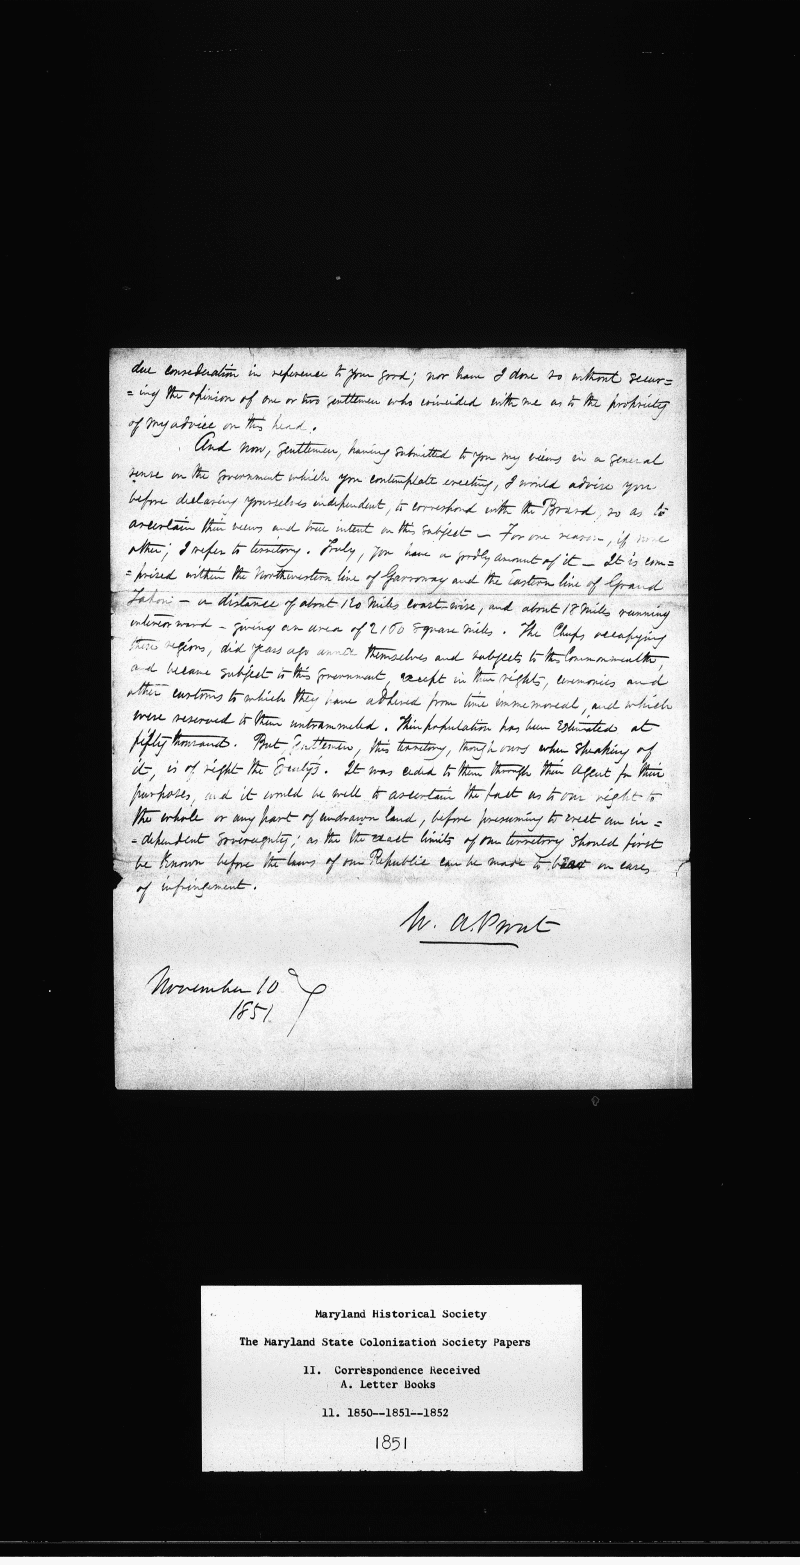 due consideration in reference to your good; nor have I done so without secur=
=ing the opinion of one or two gentlemen who coincided with me as to the propriety
of my advice on this head.
And now, gentlemen, having submitted to you my views in a general
sense on the government which you contemplate erecting, I would advise you
before declaring yourselves independent, to correspond with the Board, so as to
ascertain their views and true intent on this subject – For one reason, if none
other; I refer to territory. Truly, you have a goodly amount of it – It is com=
=prised within the Northwestern line of Garroway and the Eastern line of Grand
– a distance of about 120 miles coast-wise, and about 18 miles running
interior ward – giving an area of 2160 square miles. The Chiefs occupying
these regions, did years ago annex themselves and subjects to this Commonwealth,
and became subject to this government, except in their rights, ceremonies and
other customs to which they have adhered from time immemorial, and which
were reserved to them untrammeled. Their population has been estimated at
fifty thousand. But, Gentlemen, this territory, though ours when speaking of
it, is of right the Society's. It was ceded to them through their Agent for their
purposes, and it would be well to ascertain the fact as to our right to
the whole or any part of undrawn land, before presuming to erect an in=
=dependent sovereignty; as the the exact limits of our territory should first
be known before the laws of our Republic can be made to bear on cases
of infringement.
W. A. Prout
November 10
1851.
Maryland Historical Society
The Maryland State Colonization Society Papers
II. Correspondence Received
A. Letter Books
11. 1850--1851--1852
1851